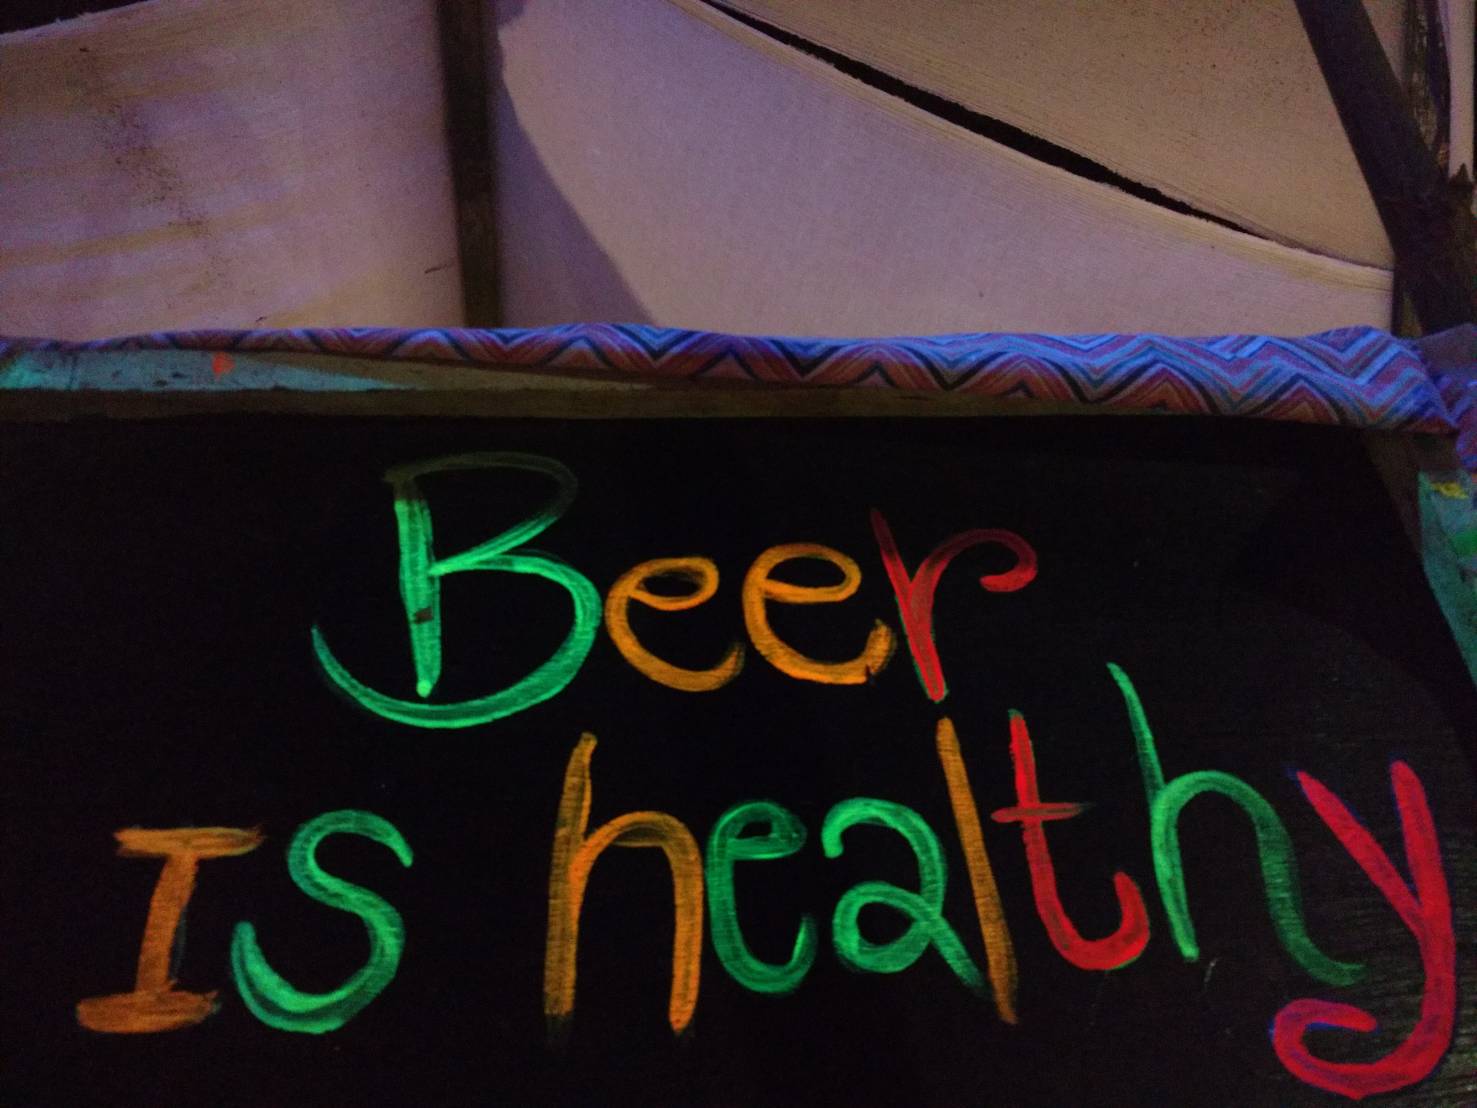 Beer
Is healthy